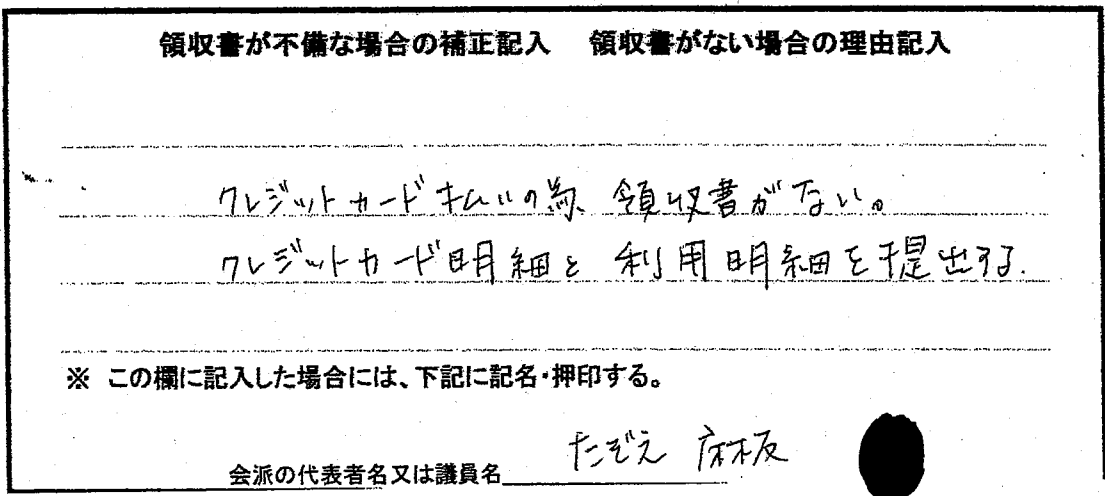 領収書が不備な場合の補正記入　領収書がない場合の理由記入
クレジットカード払いの為、領収書がない。
クレジットカード明細と利用明細を提出する.
※ この欄に記入した場合には、下記に記名・押印する。
会派の代表者名又は議員名 たぞえ 麻